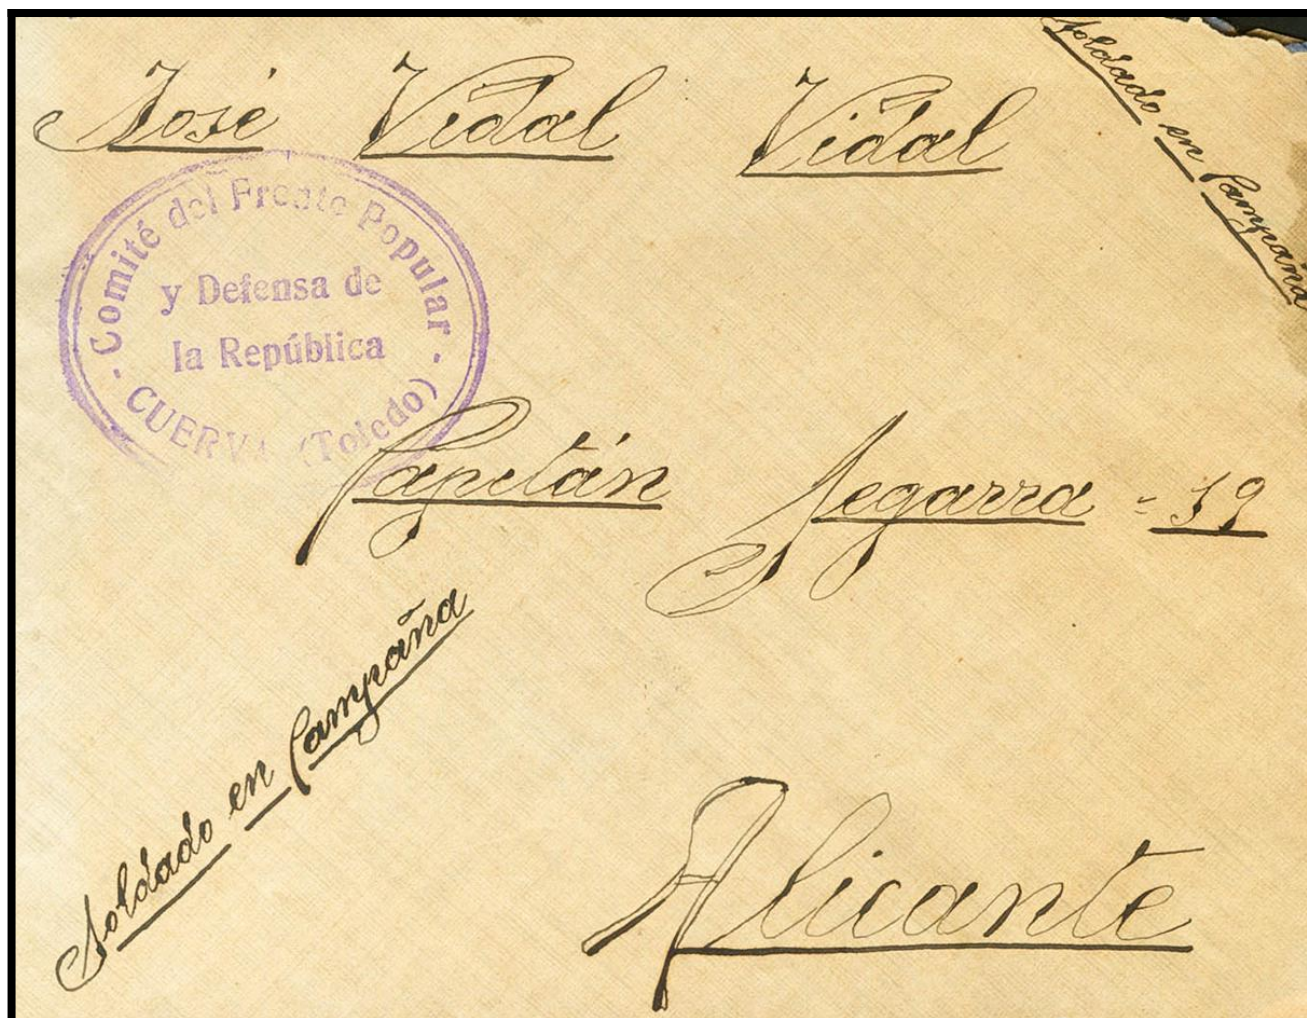 José Vidal Vidal
Soldado en Campaña
Comité del Frente Popular
y Defensa de
la República
CUERVA (Toledo)
Capitán Segarra = 39
Soldado en Campaña
Alicante